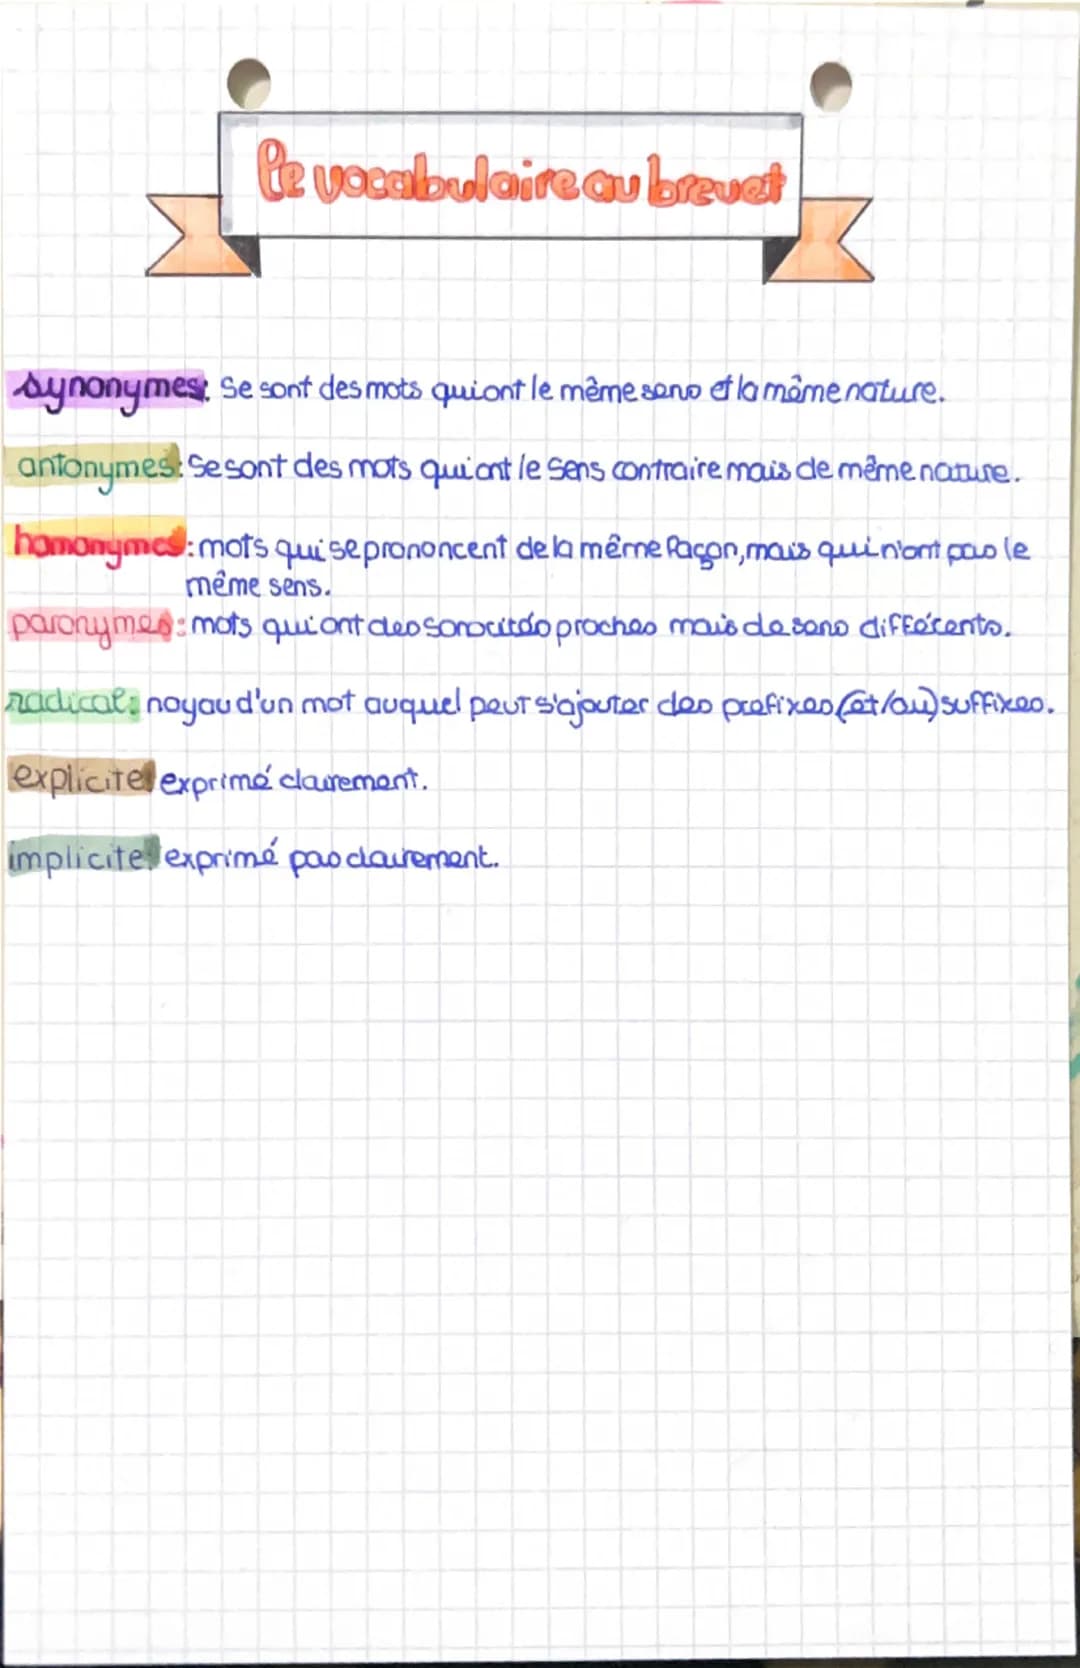 Le vocabulaire au brevet
synonymes: Se sont des mots qui ont le même sens et la même nature.
antonymes: Se sont des mots qui ont le sens contraire mais de même nature.
homonymes: mots qui se prononcent de la même façon, mais qui n'ont pas le
même sens.
paronymes: mots qui ont des sonorités proches mais de sens différents.
radical: noyau d'un mot auquel peut s'ajouter des prefixes (et/ou) suffixes.
explicite: exprimé clairement.
implicite: exprimé pas clairement.